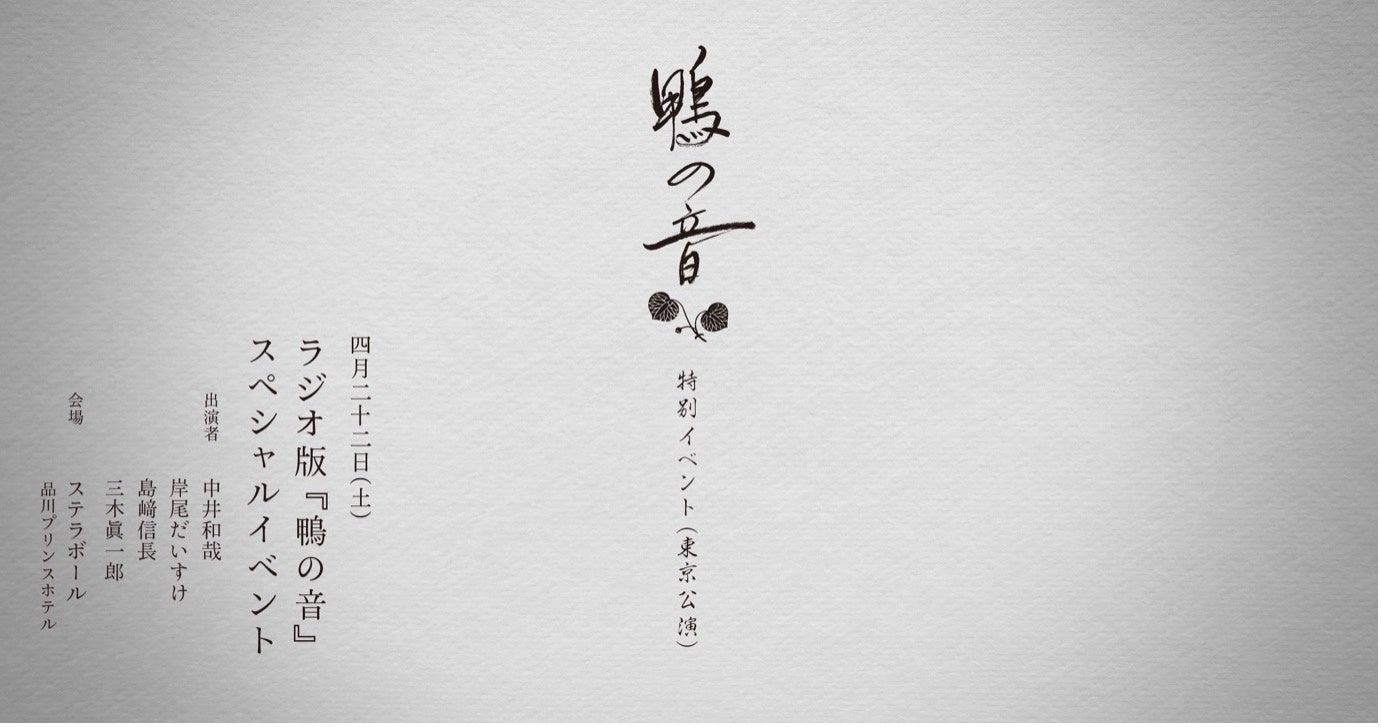 鴨の音
特別イベント(東京公演)
四月二十二日(土)
ラジオ版『鴨の音』
スペシャルイベント
出演者 中井和哉
岸尾だいすけ
島﨑信長
三木眞一郎
会場 ステラボール
品川プリンスホテル